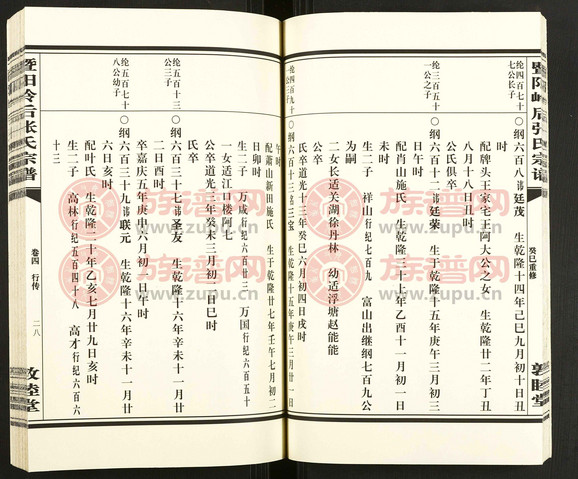 暨阳岭后张氏宗谱
癸巳重修
敦睦堂
纶四百七十
七公长子
○纲六百八讳廷茂 生乾隆十四年己巳九月初十日丑
时
配牌头王家宅王阿大公之女 生乾隆廿二年丁丑
八月十八日丑时
公氏俱卒
纶三百五十
一公之子
○纲六百十二讳廷荣 生乾隆十五年庚午三月初一
日午时
配肖山施氏 生乾隆三十年乙酉十一月初一日
未时
生二子 祥山行纪七百九 富山出继纲七百九公
为嗣
二女长适关湖徐丹林 幼适浮塘赵能能
公卒
氏卒道光十三年癸巳六月初四日戌时
纶四百九十
公幼子
○纲六百十三讳三宝 生乾隆十五年庚午三月廿一日
午时
配萧山新田施氏 生于乾隆廿七年壬午七月初二
日卯时
生二子 万成行纪六百廿三 万国行纪六百五十
一女适江口楼阿七
公卒道光三年癸未三月初二日巳时
氏卒
纶五百十三
公三子
○纲六百三十七讳圣友 生乾隆十六年辛未十一月廿
二日酉时
卒嘉庆五年庚申六月初二日午时
纶五百七十
八公幼子
○纲六百三十九讳联元 生乾隆十六年辛未十一月廿
六日亥时
配叶氏 生乾隆二十年乙亥七月廿九日亥时
生二子 高林行纪五百四十八 高才行纪六百六
十三
暨阳岭后张氏宗谱
卷四 行传
二八
敦睦堂
族谱网
www.zupu.cn